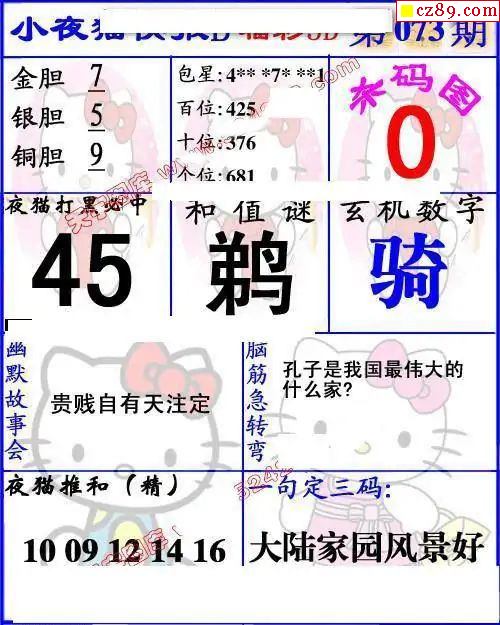 cz89.com
小夜猫快报B 福彩3D 第073期
金胆 7
银胆 5
铜胆 9
包星: 4** *7* **1
百位: 425
十位: 376
个位: 681
杀码图
0
夜猫打黑必中
45
和值谜
鹈
玄机数字
骑
幽默故事会
贵贱自有天注定
脑筋急转弯
孔子是我国最伟大的
什么家?
夜猫推和（精）
10 09 12 14 16
一句定三码:
大陆家园风景好